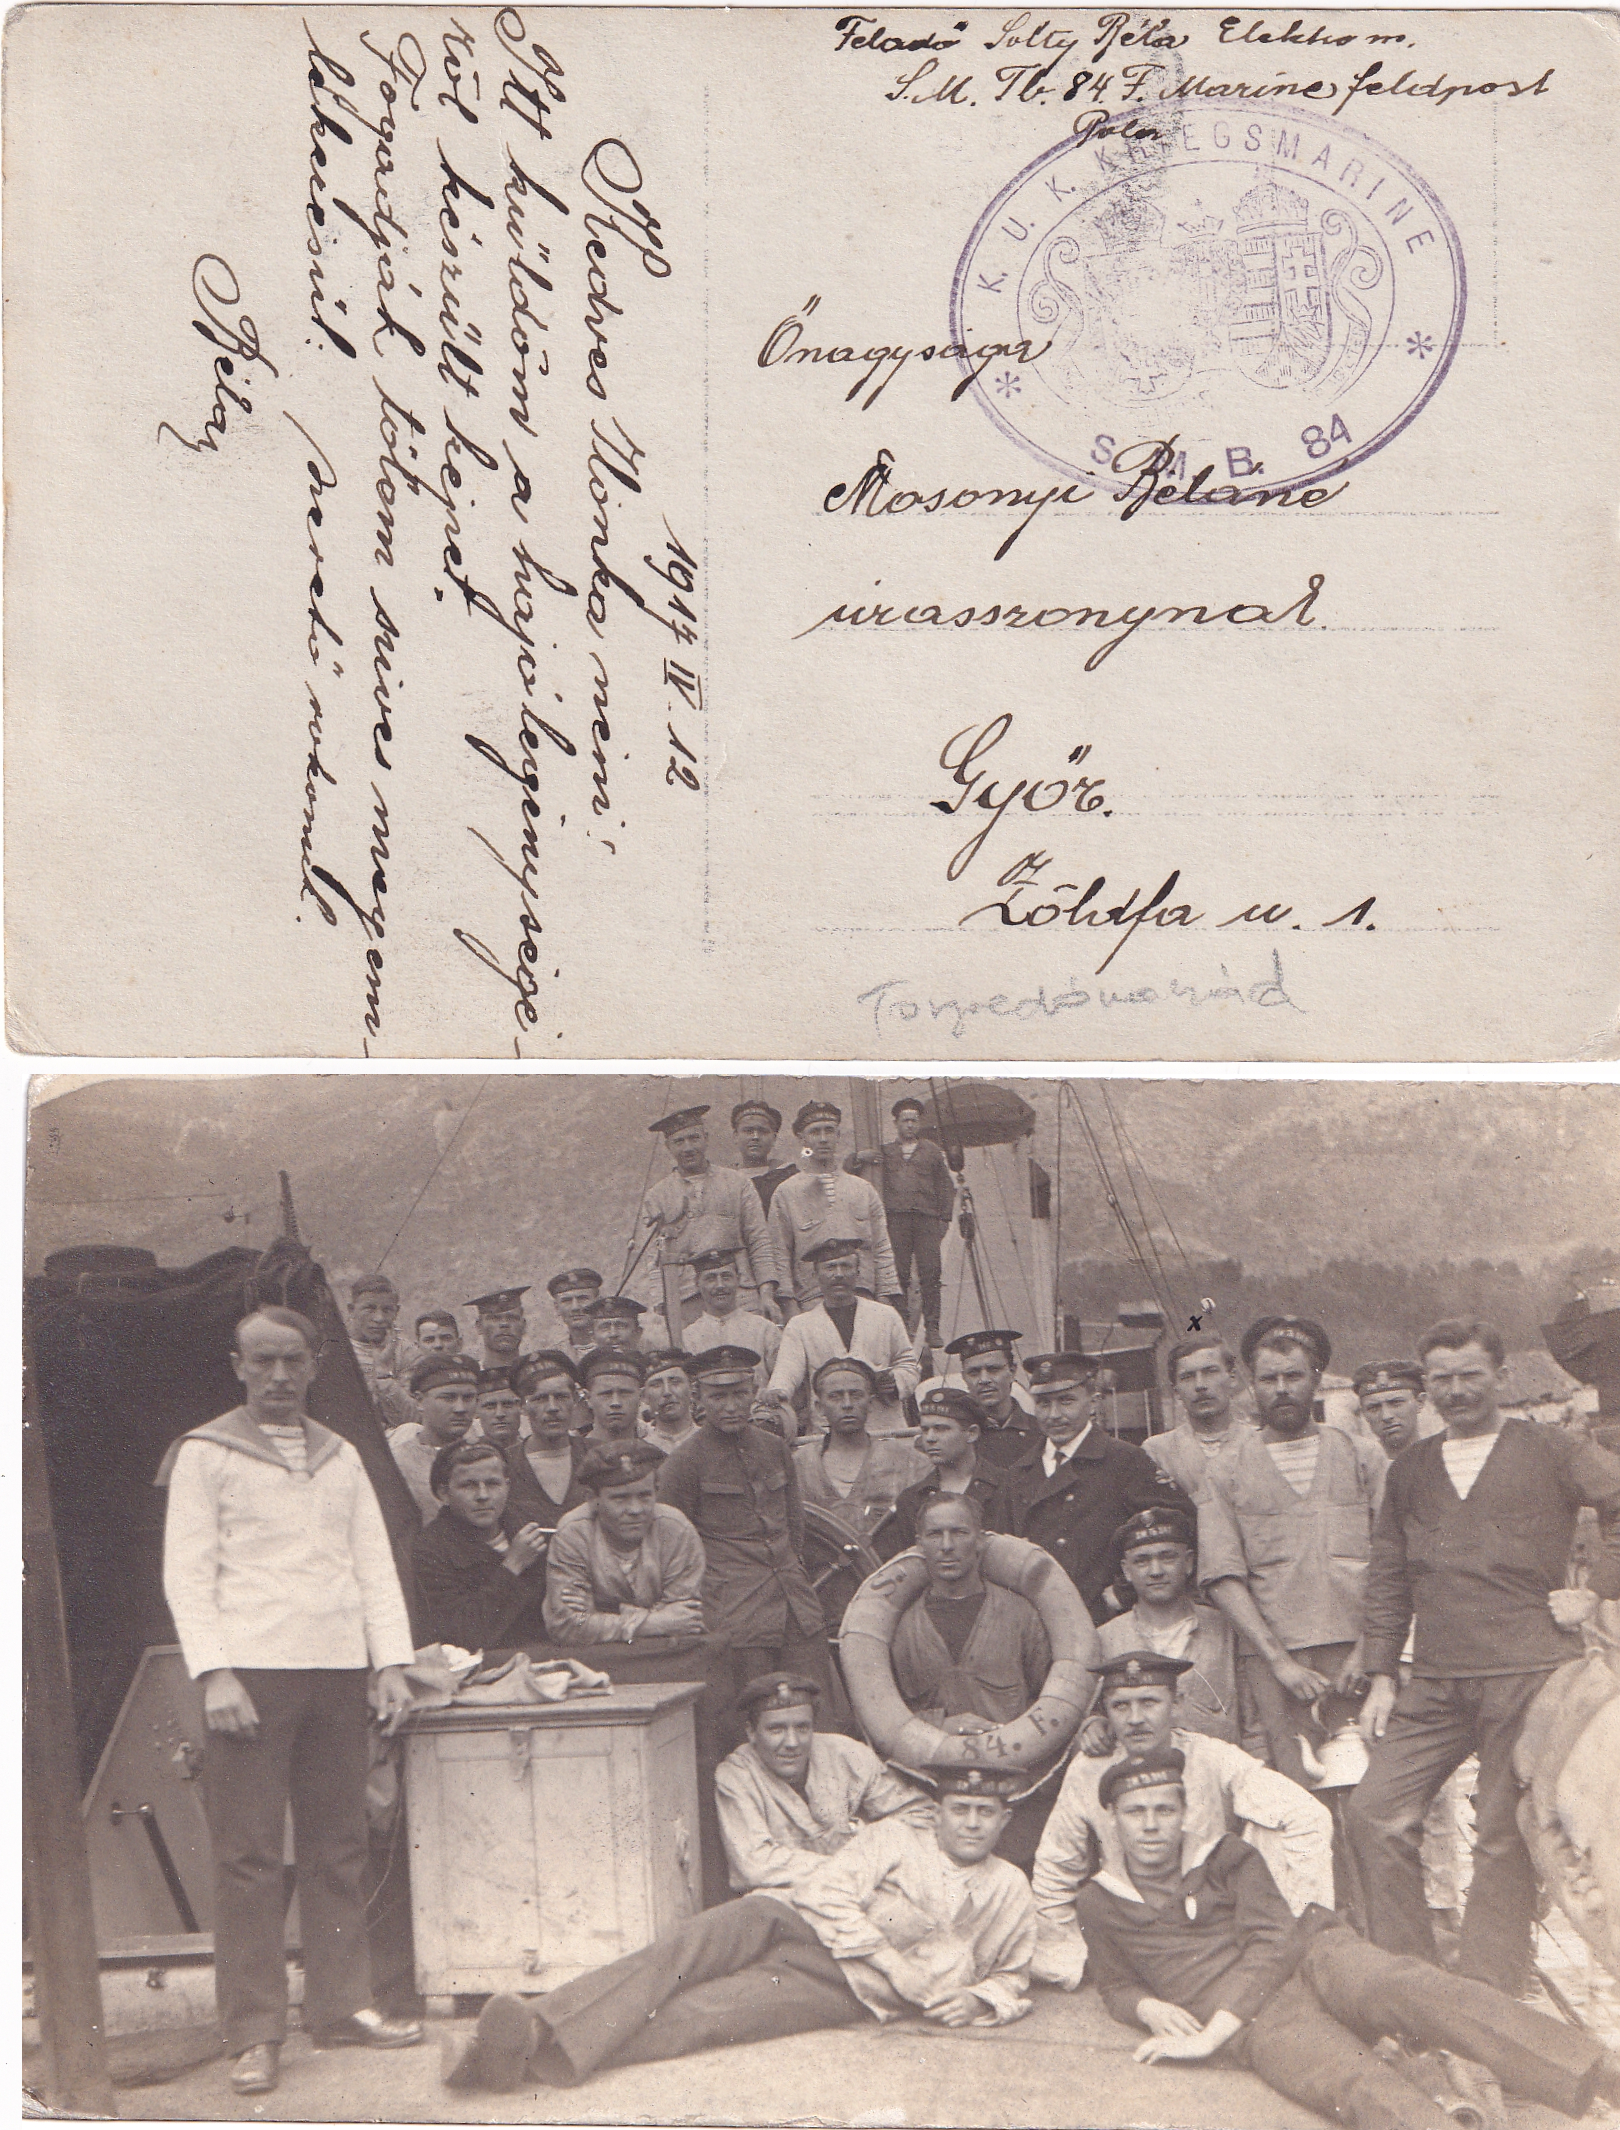 Feladó Solty Béla Elektrom.
S. M. Tb. 84. F. Marine feldpost
Pola
K. U. K. KRIEGSMARINE
S. M. B. 84
Őnagysága
Mosonyi Béláné
úrasszonynak.
Győr.
Zöldfa u. 1.
Torpedónaszád
1917 IV. 12
Kedves Ilonka néni!
Itt küldöm a hajó legénységé-
ről készült képet.
Fogadják tőlem szives megem-
lékezésül.
szerető rokonuk.
Béla
x
S.
84. F.